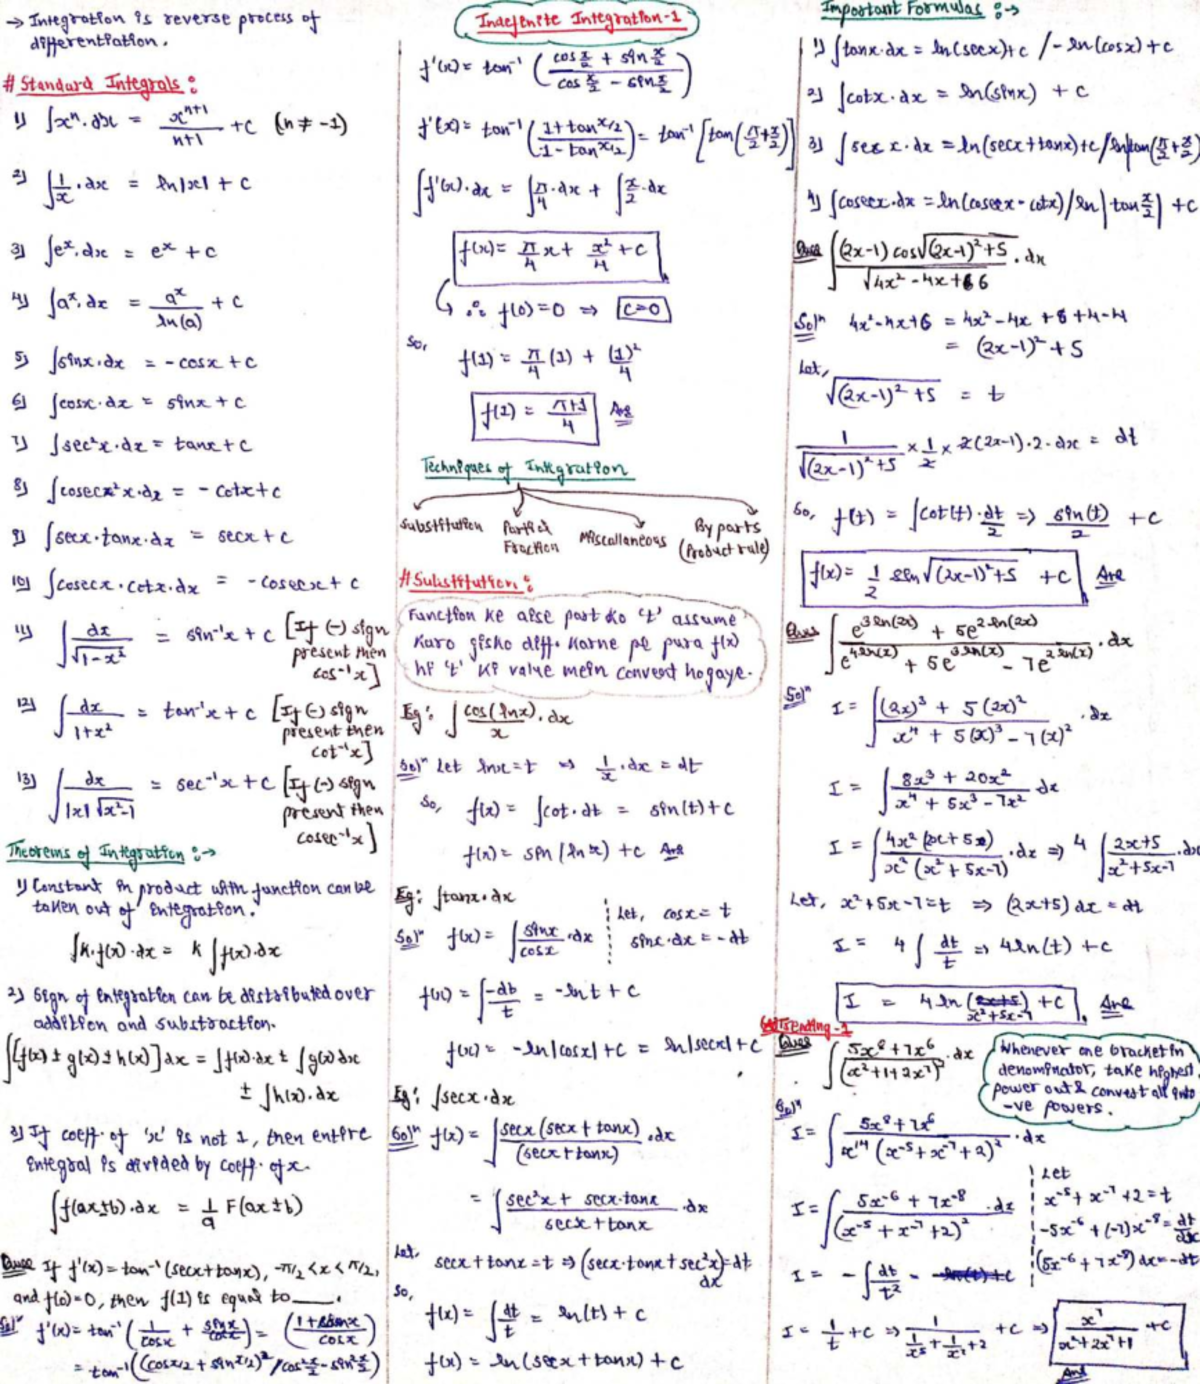 → Integration is reverse process of
differentiation.
# Standard Integrals :
1) ∫xⁿ·dx = xⁿ⁺¹/(n+1) + c (n ≠ -1)
2) ∫1/x·dx = ln|x| + c
3) ∫eˣ·dx = eˣ + c
4) ∫aˣ·dx = aˣ/ln(a) + c
5) ∫sinx·dx = -cosx + c
6) ∫cosx·dx = sinx + c
7) ∫sec²x·dx = tanx + c
8) ∫cosec²x·dx = -cotx + c
9) ∫secx·tanx·dx = secx + c
10) ∫cosecx·cotx·dx = -cosecx + c
11) ∫dx/√(1-x²) = sin⁻¹x + c [If (-) sign
present then
cos⁻¹x]
12) ∫dx/(1+x²) = tan⁻¹x + c [If (-) sign
present then
cot⁻¹x]
13) ∫dx/(|x|√(x²-1)) = sec⁻¹x + c [If (-) sign
present then
cosec⁻¹x]
Theorems of Integration :→
1) Constant in product with function can be
taken out of integration.
∫k·f(x)·dx = k∫f(x)·dx
2) Sign of integration can be distributed over
addition and substraction.
∫[f(x) ± g(x) ± h(x)]dx = ∫f(x)·dx ± ∫g(x)dx
± ∫h(x)·dx
3) If coeff. of 'x' is not 1, then entire
integral is divided by coeff. of x.
∫f(ax±b)·dx = 1/a F(ax±b)
Ques If f'(x) = tan⁻¹(secx+tanx), -π/2 < x < π/2,
and f(0)=0, then f(1) is equal to ___.
Solⁿ f'(x) = tan⁻¹(1/cosx + sinx/cosx) = ((1+sinx)/cosx)
= tan⁻¹((cosx/2 + sinx/2)²/cos²x/2 - sin²x/2)
Indefinite Integration-1
f'(x) = tan⁻¹((cos x/2 + sin x/2)/(cos x/2 - sin x/2))
f'(x) = tan⁻¹((1+tanx/2)/(1-tanx/2)) = tan⁻¹[tan(π/2+x/2)]
∫f'(x)·dx = ∫π/4·dx + ∫x/2·dx
f(x) = π/4 x + x²/4 + c
∴ f(0)=0 ⇒ c=0
So,
f(1) = π/4 (1) + (1)²/4
f(1) = (π+1)/4 Ans
Techniques of Integration
Substitution Partial Fraction Miscellaneous By parts (Product rule)
# Substitution :
Function ke aise part ko 't' assume
karo jisko diff. karne pe pura f(x)
hi 't' ki value mein convert hogaye.
Eg: ∫cos(lnx)/x·dx
Solⁿ Let lnx = t ⇒ 1/x·dx = dt
So, f(x) = ∫cot·dt = sin(t) + c
f(x) = sin(lnx) + c Ans
Eg: ∫tanx·dx
Solⁿ f(x) = ∫sinx/cosx·dx
Let, cosx = t
sinx·dx = -dt
f(x) = ∫-dt/t = -lnt + c
f(x) = -ln|cosx| + c = ln|secx| + c
Eg: ∫secx·dx
Solⁿ f(x) = ∫secx(secx + tanx)/(secx+tanx)·dx
= ∫(sec²x + secx·tanx)/(secx + tanx)·dx
Let, secx + tanx = t ⇒ (secx·tanx + sec²x)dx = dt
So,
f(x) = ∫dt/t = ln(t) + c
f(x) = ln(secx + tanx) + c
Important Formulas :→
1) ∫tanx·dx = ln(secx)+c / -ln(cosx) + c
2) ∫cotx·dx = ln(sinx) + c
3) ∫secx·dx = ln(secx+tanx)+c / ln|tan(π/4+x/2)
4) ∫cosecx·dx = ln(cosecx-cotx) / ln|tan x/2| + c
Ques ∫(2x-1)cos√((2x-1)²+5)/√(4x²-4x+6)·dx
Solⁿ 4x²-4x+6 = 4x²-4x+6+4-4
= (2x-1)²+5
Let,
√((2x-1)²+5) = t
1/√((2x-1)²+5) × 1/2 × 2(2x-1)·2·dx = dt
So, f(t) = ∫cot(t)·dt/2 ⇒ sin(t)/2 + c
f(x) = 1/2 sin√((2x-1)²+5) + c Ans
Ques ∫(e^(3ln(2x)) + 5e^(2ln(2x)))/(e^(4ln(x)) + 5e^(3ln(x)) - 7e^(2ln(x)))·dx
Solⁿ I = ∫((2x)³ + 5(2x)²)/(x⁴ + 5(x)³ - 7(x)²)·dx
I = ∫(8x³ + 20x²)/(x⁴ + 5x³ - 7x²) dx
I = ∫4x²(2x+5)/(x²(x²+5x-7))·dx ⇒ 4∫(2x+5)/(x²+5x-7)·dx
Let, x²+5x-7=t ⇒ (2x+5)dx = dt
I = 4∫dt/t ⇒ 4ln(t) + c
I = 4ln(x²+5x-7) + c, Ans
Ques ∫(5x⁸+7x⁶)/(x²+1+2x⁷)²·dx
Whenever one bracket in
denominator, take highest
power out & convert all into
-ve powers.
Solⁿ
I = ∫(5x⁸+7x⁶)/(x¹⁴(x⁻⁵+x⁻⁷+2)²)·dx
I = ∫(5x⁻⁶+7x⁻⁸)/(x⁻⁵+x⁻⁷+2)²·dx
Let
x⁻⁵+x⁻⁷+2=t
-5x⁻⁶+(-7)x⁻⁸ = dt/dx
(5x⁻⁶+7x⁻⁸)dx = -dt
I = -∫dt/t²
I = 1/t + c ⇒ 1/(1/x⁵+1/x⁷+2) + c ⇒ x⁷/(x²+2x⁷+1) + c
Ans